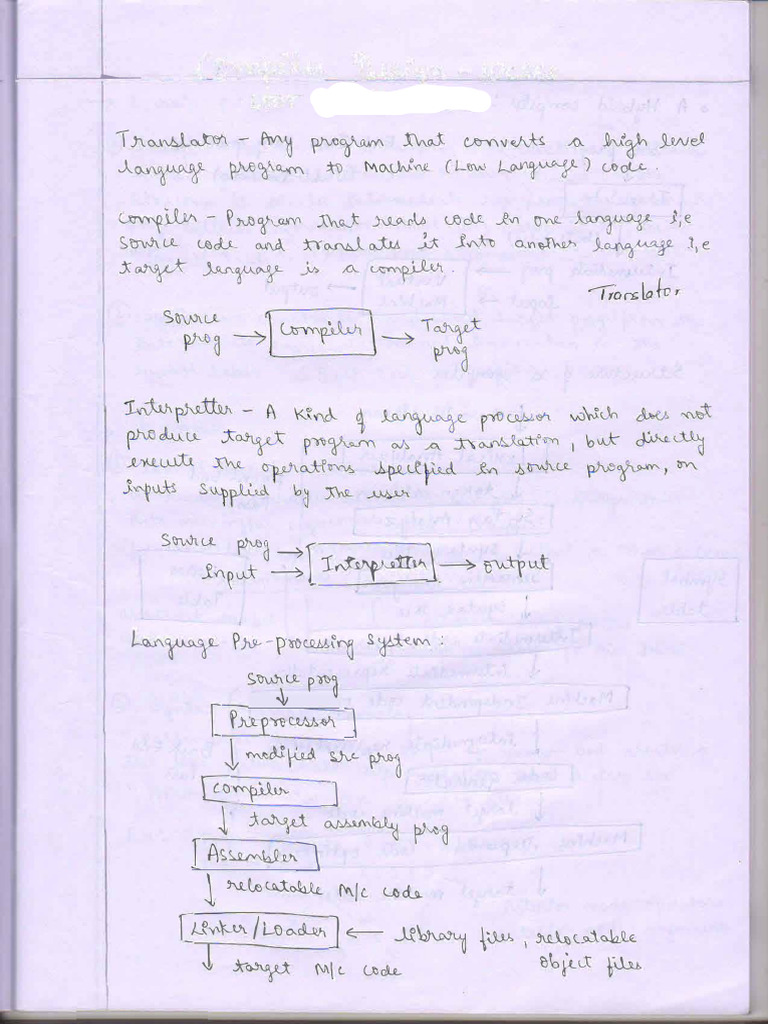 Translator - Any program that converts a high level
language program to Machine (Low Language) code.
Compiler - Program that reads code in one language i,e
source code and translates it into another language i,e
target language is a compiler.
Translator
Source prog → Compiler → Target prog
Interpretter - A kind of language processor which does not
produce target program as a translation, but directly
execute the operations specified in source program, on
inputs supplied by the user
Source prog →
Input → Interpretter → output
Language Pre-processing System :
Source prog
Preprocessor
modified src prog
Compiler
target assembly prog
Assembler
relocatable M/c code
Linker/Loader ← library files, relocatable
object files
target M/c code